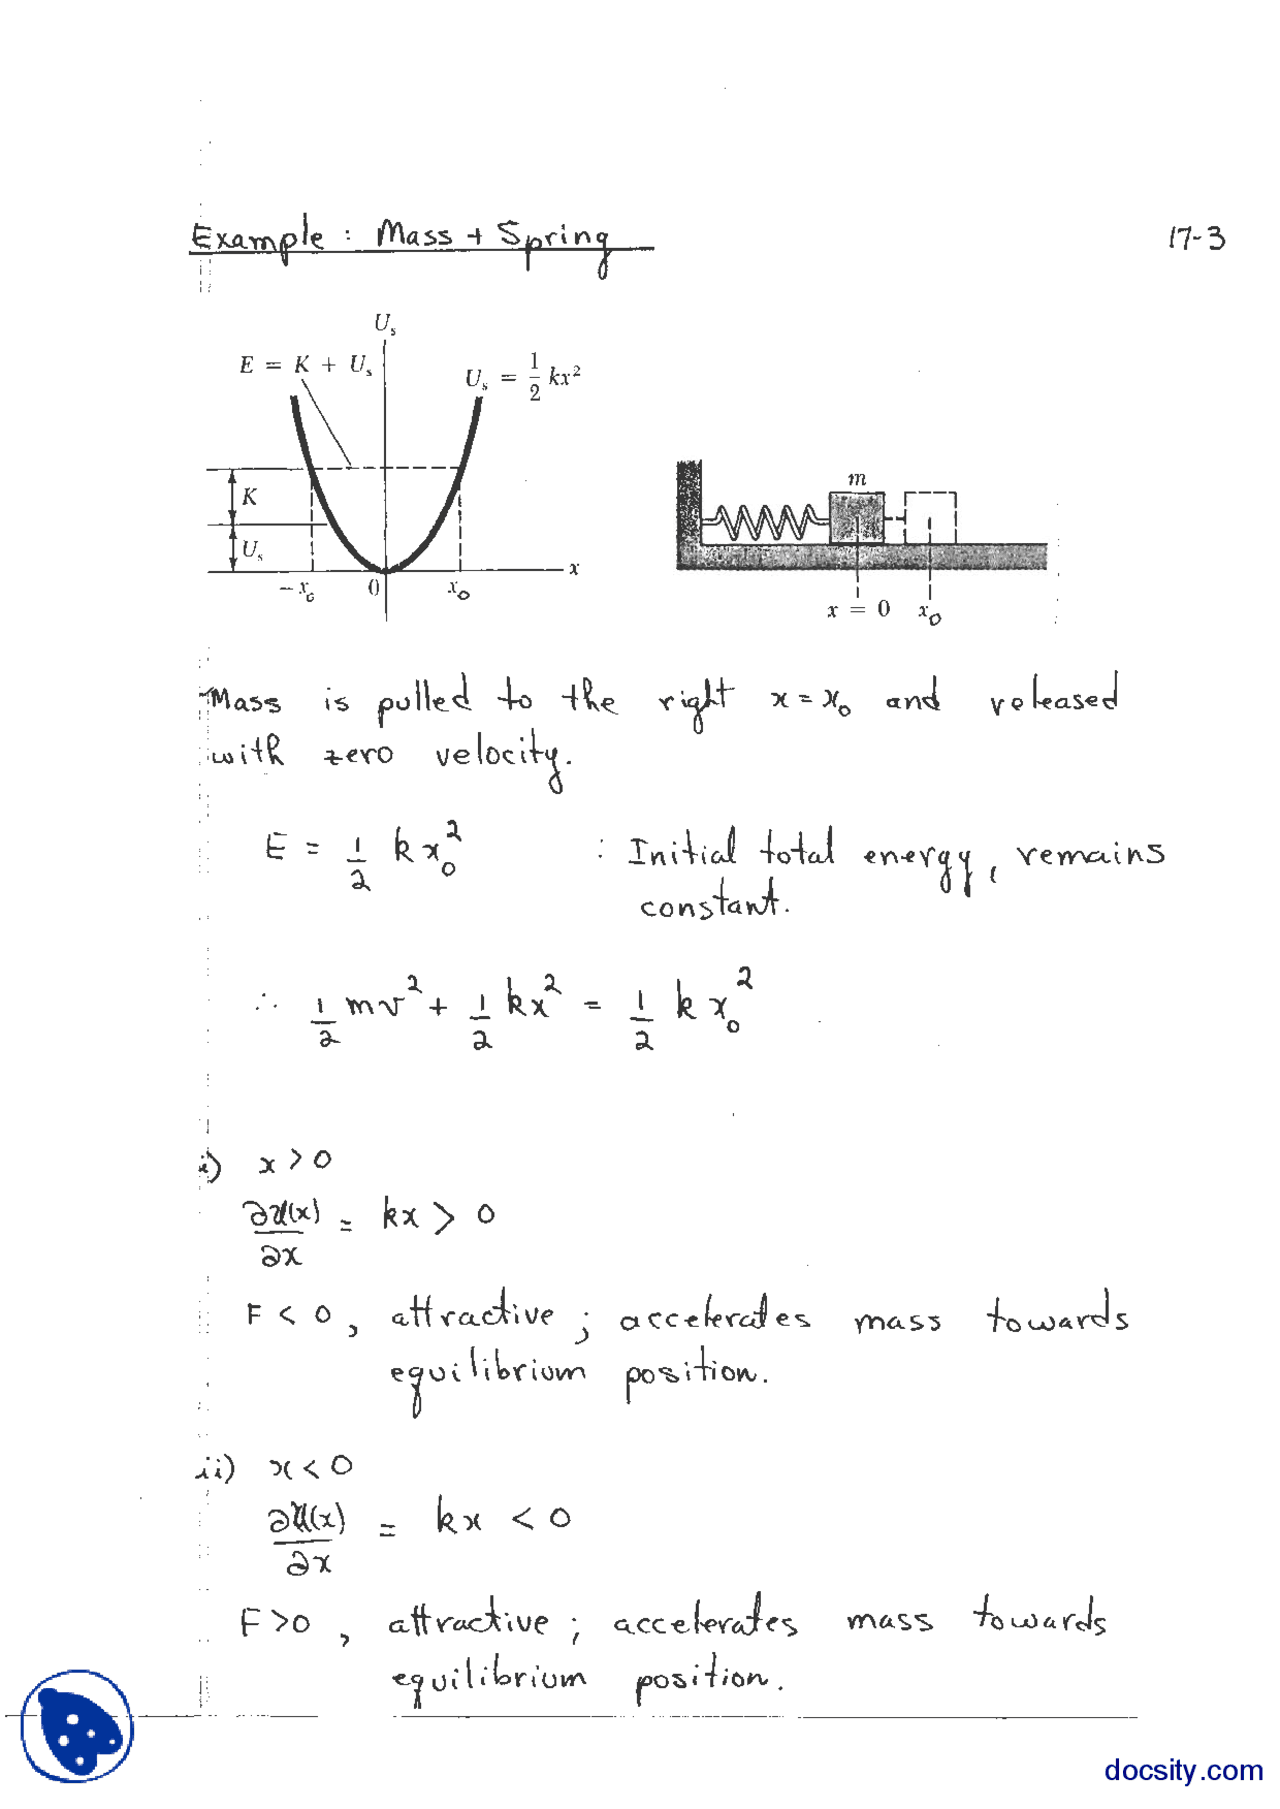 Example : Mass + Spring
17-3
U_s
E = K + U_s
U_s = 1/2 kx²
K
U_s
-x₀ 0 x₀ x
m
x = 0 x₀
Mass is pulled to the right x = x₀ and released
with zero velocity.
E = 1/2 k x₀² : Initial total energy, remains
constant.
∴ 1/2 mv² + 1/2 kx² = 1/2 k x₀²
i) x > 0
∂U(x)/∂x = kx > 0
F < 0, attractive ; accelerates mass towards
equilibrium position.
ii) x < 0
∂U(x)/∂x = kx < 0
F > 0, attractive ; accelerates mass towards
equilibrium position.
docsity.com